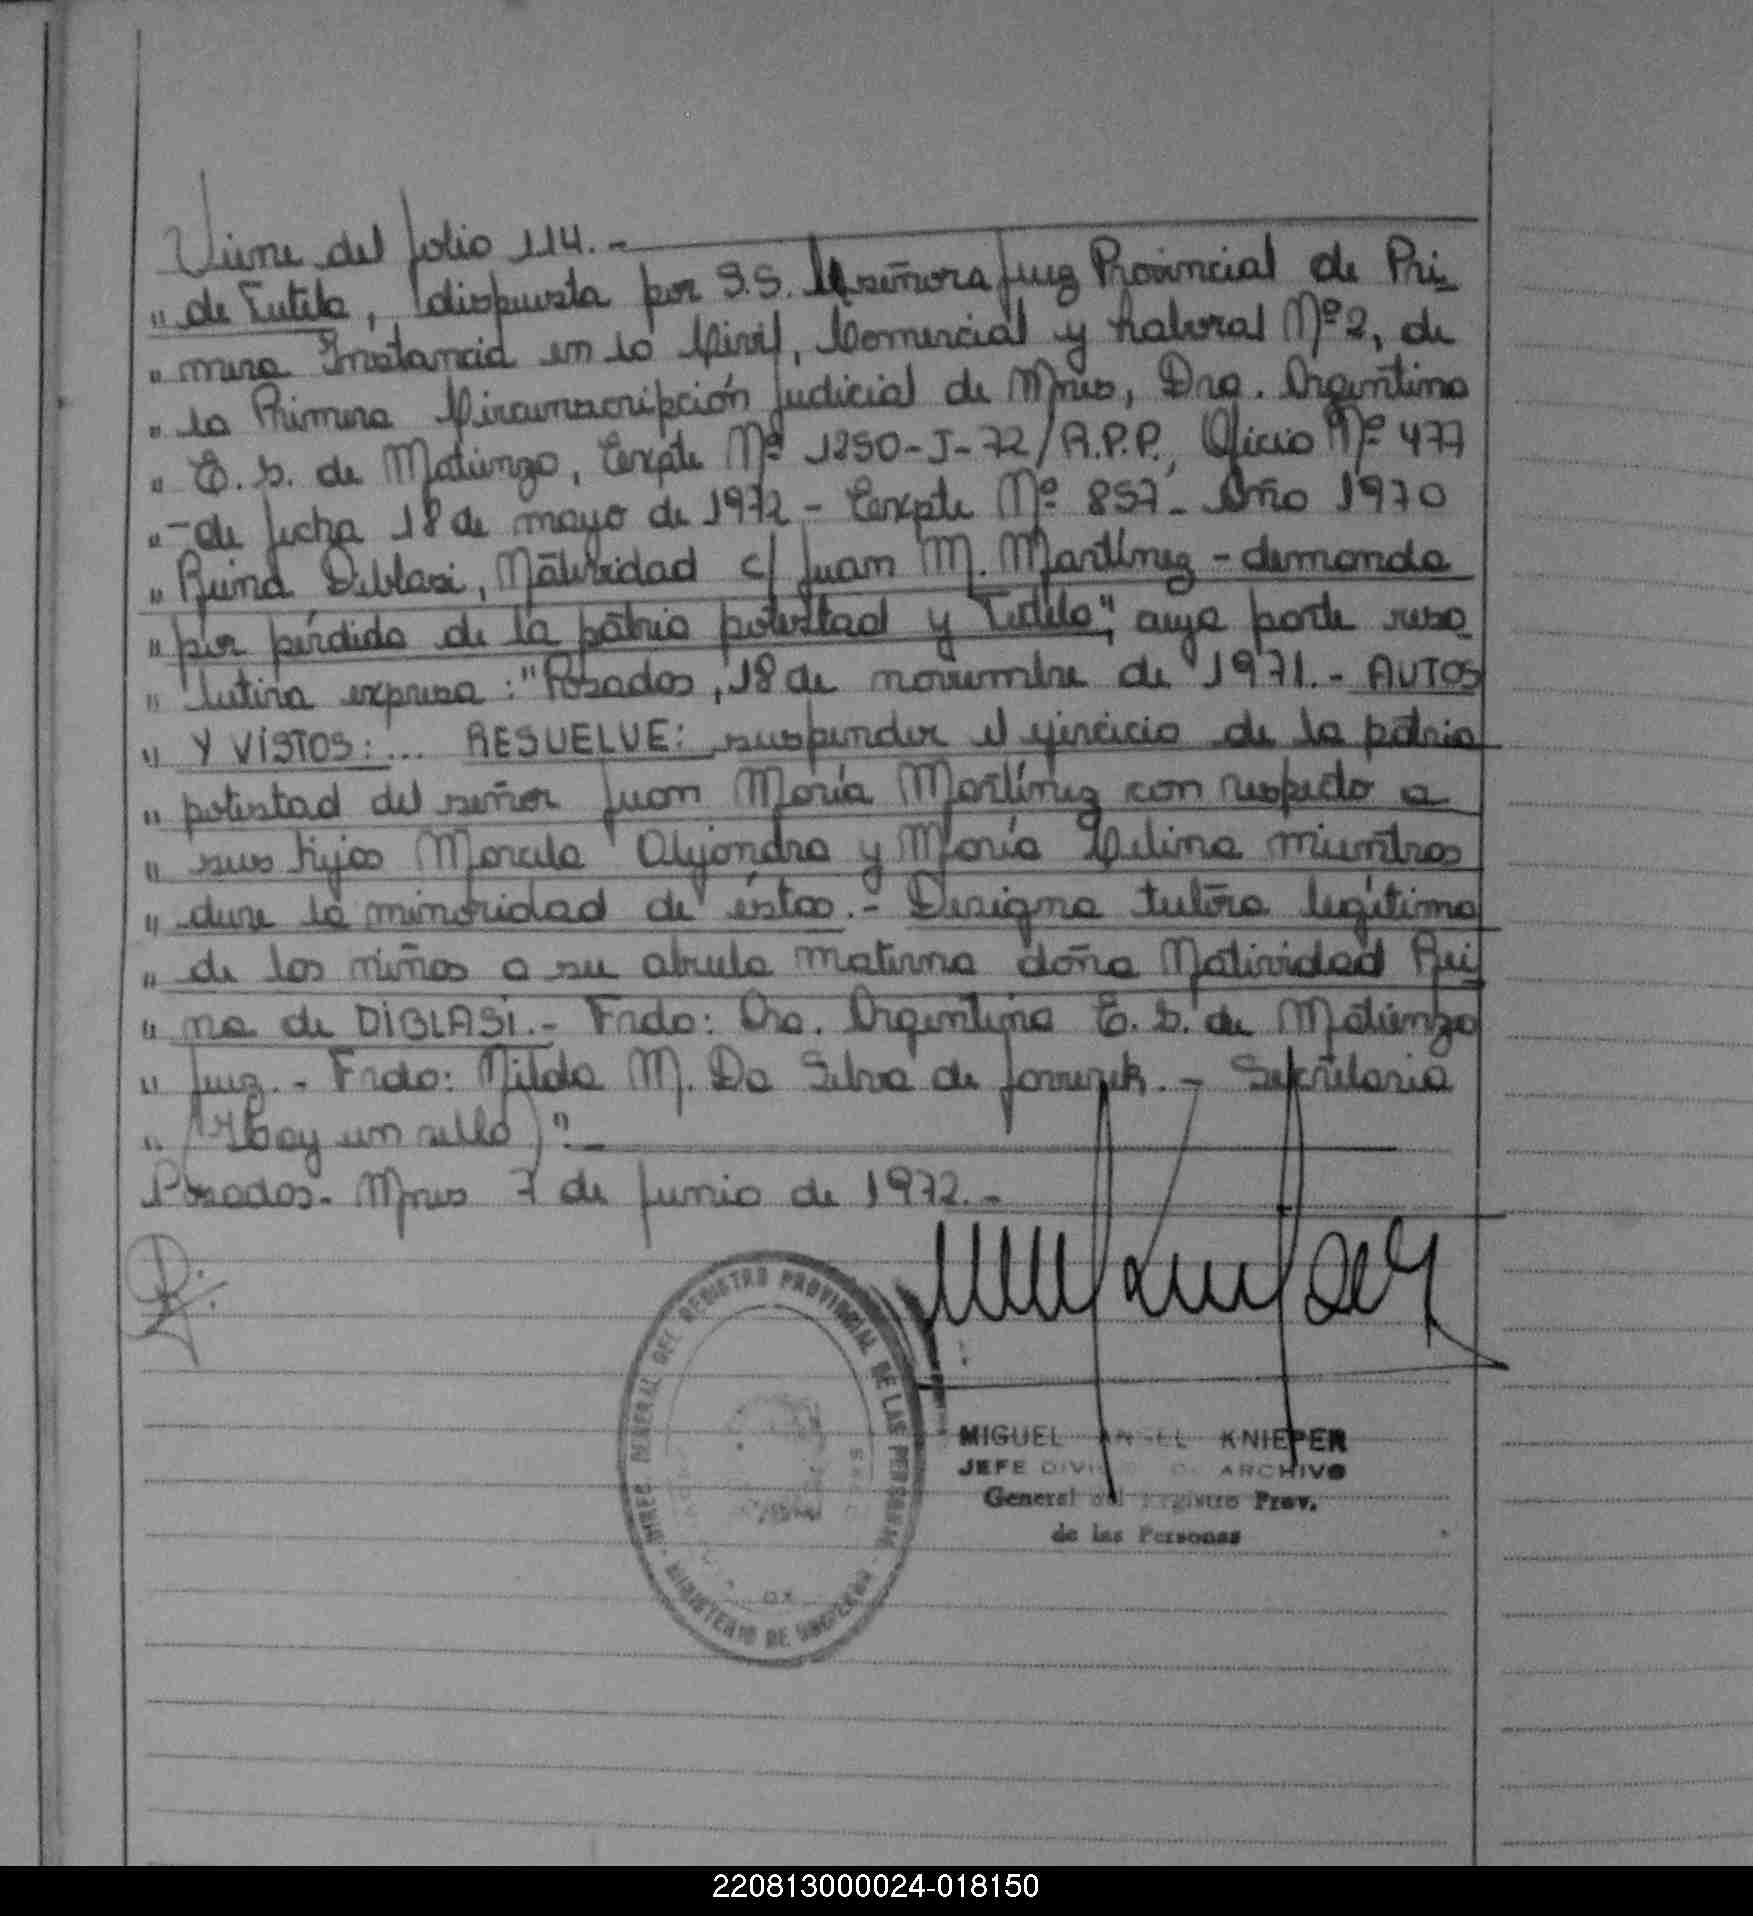 Viene del folio 114.-
" de Tutela, dispuesta por S.S. la señora Juez Provincial de Pri_
" mera Instancia en lo Civil, Comercial y Laboral Nº 2, de
" la Primera Circunscripción Judicial de Mnes, Dra. Argentina
" E. S. de Matienzo, Expte Nº 1250-J-72/R.P.P., Oficio Nº 477
" - de fecha 18 de mayo de 1972 - Expte Nº 857_ Año 1970
" Reina Diblasi, Natividad c/ Juan M. Martínez - demanda
" por pérdida de la patria potestad y Tutela", cuya parte reso_
" lutiva expresa: "Posadas, 18 de noviembre de 1971.- AUTOS
" Y VISTOS:... RESUELVE: suspender el ejercicio de la patria
" potestad del señor Juan María Martínez con respecto a
" sus hijos Marcela Alejandra y María Celina mientras
" dure la minoridad de éstos.- Designa tutora legítima
" de los niños a su abuela materna doña Natividad Rei
" na de DIBLASI.- Frdo: Dra. Argentina E. S. de Matienzo
" Juez.- Frdo: Nilda M. Da Silva de - Secretaria
" (Hay un sello)".-
Posadas. Mnes 7 de Junio de 1972.-
DIREC. GENERAL DEL REGISTRO PROVINCIAL DE LAS PERSONAS
MINISTERIO DE GOBIERNO
MIGUEL ANGEL KNIEPER
JEFE DIVISION DE ARCHIVO
General del Registro Prov.
de las Personas
220813000024-018150